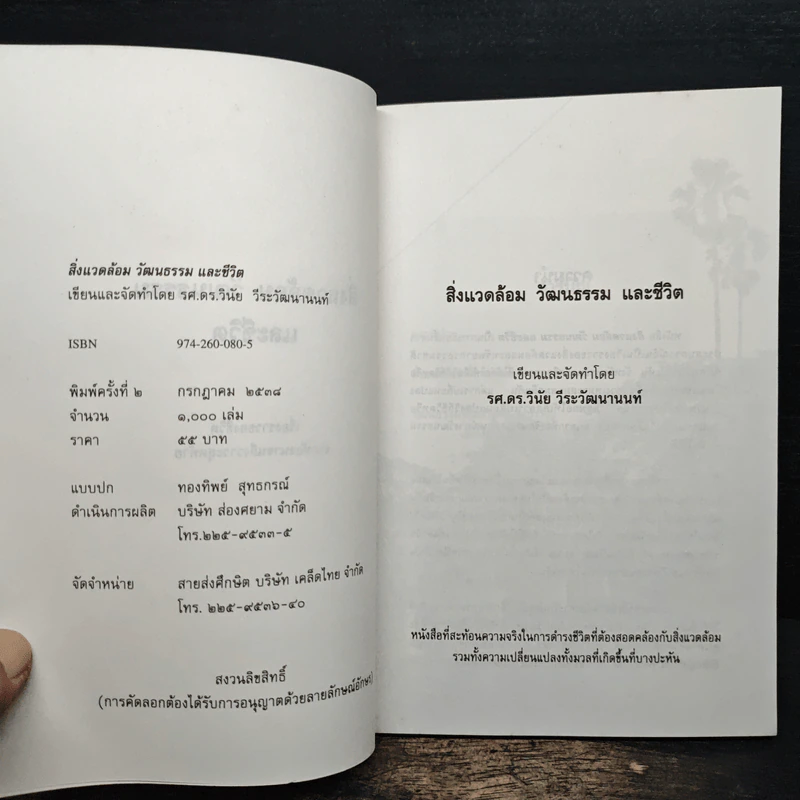 สิ่งแวดล้อม วัฒนธรรม และชีวิต
เขียนและจัดทำโดย รศ.ดร.วินัย วีระวัฒนานนท์
ISBN 974-260-080-5
พิมพ์ครั้งที่ ๒ กรกฎาคม ๒๕๓๘
จำนวน ๑,๐๐๐ เล่ม
ราคา ๕๕ บาท
แบบปก ทองทิพย์ สุทธกรณ์
ดำเนินการผลิต บริษัท ส่องศยาม จำกัด
โทร.๒๒๕-๙๕๓๓-๕
จัดจำหน่าย สายส่งศึกษิต บริษัท เคล็ดไทย จำกัด
โทร. ๒๒๕-๙๕๓๖-๔๐
สงวนลิขสิทธิ์
(การคัดลอกต้องได้รับการอนุญาตด้วยลายลักษณ์อักษร)
สิ่งแวดล้อม วัฒนธรรม และชีวิต
เขียนและจัดทำโดย
รศ.ดร.วินัย วีระวัฒนานนท์
หนังสือที่สะท้อนความจริงในการดำรงชีวิตที่ต้องสอดคล้องกับสิ่งแวดล้อม
รวมทั้งความเปลี่ยนแปลงทั้งมวลที่เกิดขึ้นที่บางปะหัน